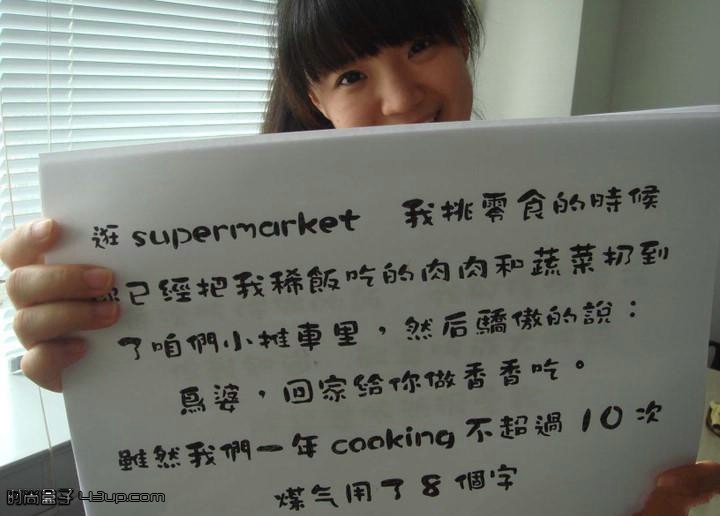 逛 supermarket 我挑零食的時候
你已經把我稀飯吃的肉肉和蔬菜扔到
了咱們小推車里，然后驕傲的說：
爲婆，回家給你做香香吃。
雖然我們一年 cooking 不超過 10 次
煤气用了 8 個字
时尚盒子 43up.com